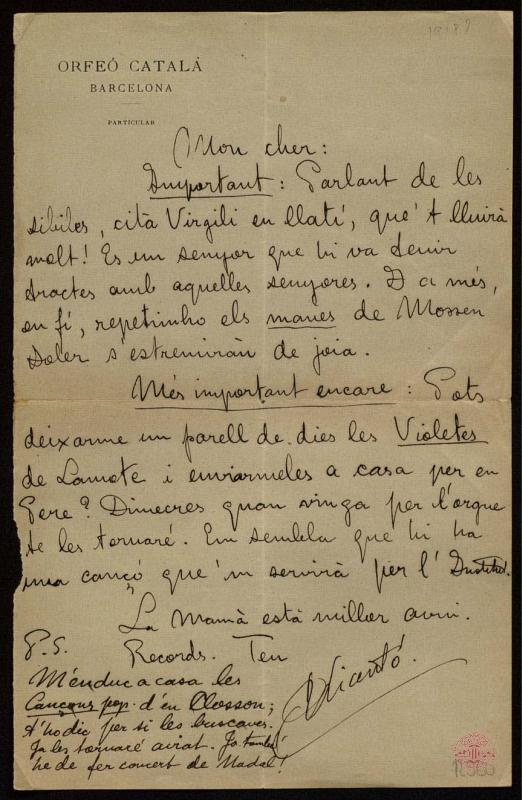 18182
ORFEÓ CATALÀ
BARCELONA
PARTICULAR
Mon cher:
Important: Parlant de les
sibiles, cità Virgili en llatí, que 't lluirà
molt! Es un senyor que hi va tenir
tractes amb aquelles senyores. I a més,
en fí, repetinho els manes de Mossen
Soler s'estremiràn de joia.
Més important encare: Pots
deixarme un parell de dies les Violetes
de Lamote i enviarmeles a casa per en
Pere? Dimecres quan vinga per l'orgue
te les tornaré. Em sembla que hi ha
una cançó que 'm servirà per l'Institut.
La Mamà está millor avui.
P.S. Records. Teu
M'enduc a casa les
Cançons pop. d'en Closson;
t'ho dic per si les buscaves.
Ja les tornaré aviat. Jo també
he de fer concert de Nadal!